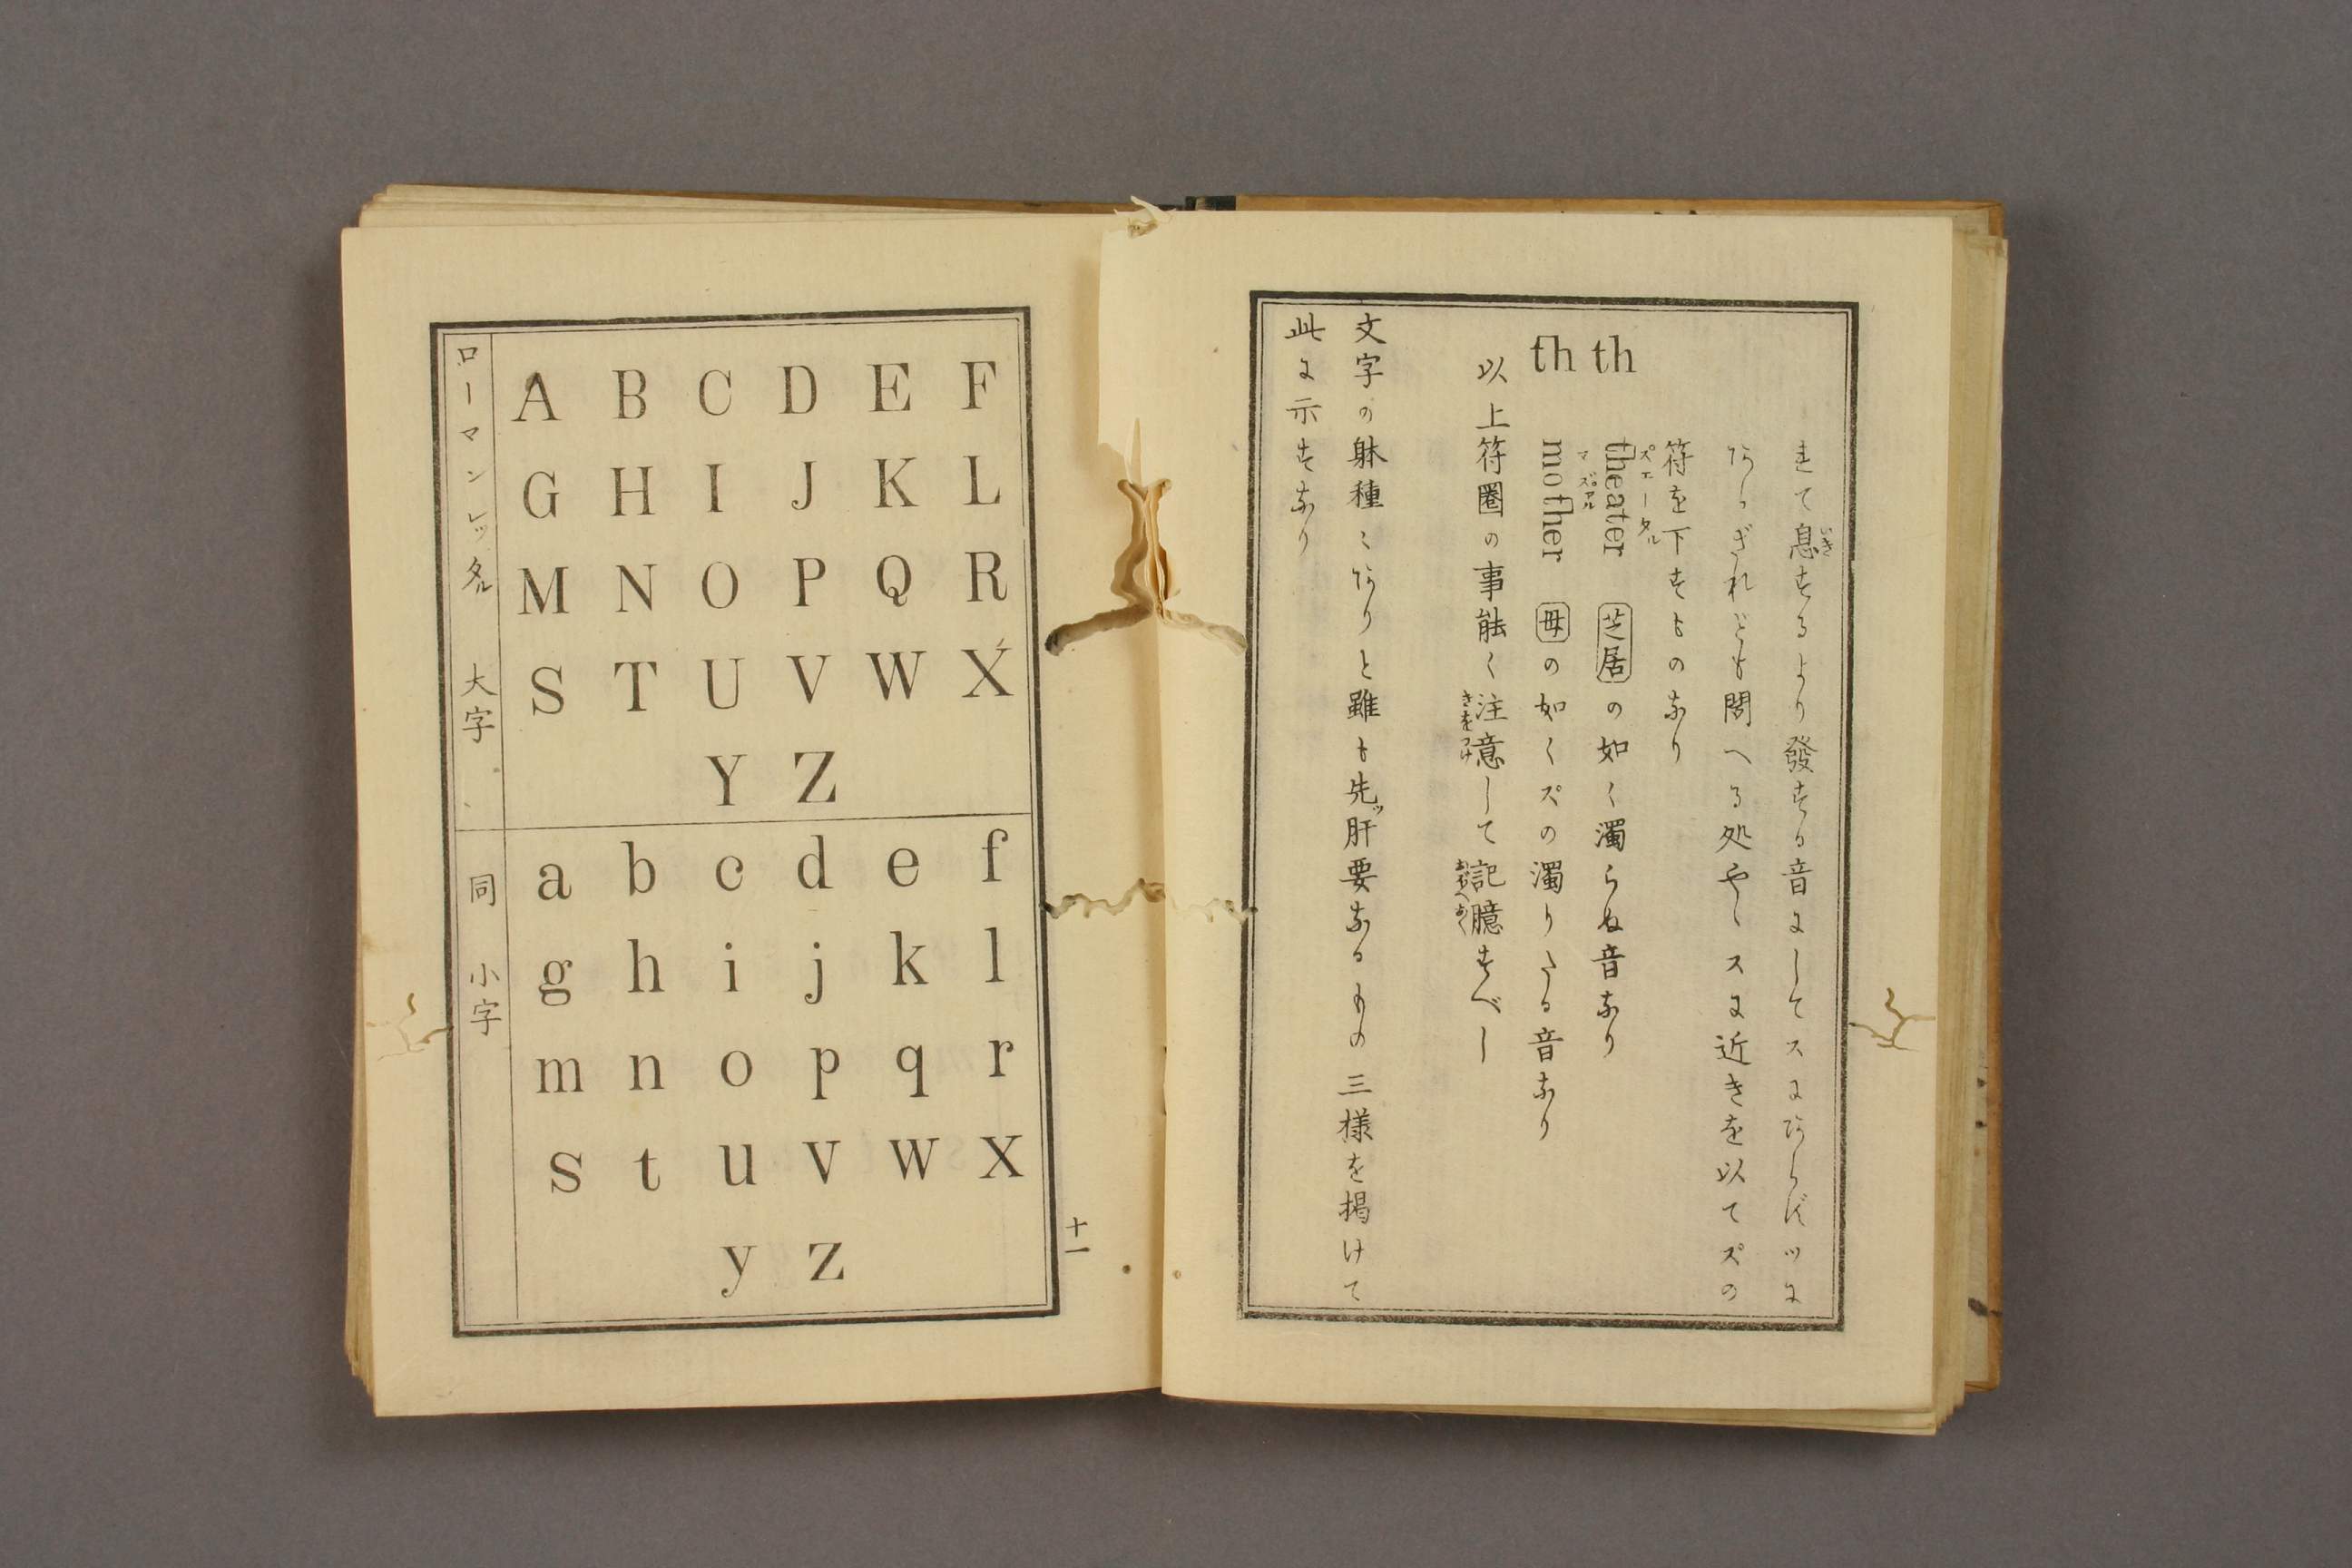 きて息するより發する音にしてスにあらずツに
いき
あらざれども聞へる処やゝスに近きを以てス゚の
符を下すものなり
th theater 芝居の如く濁らぬ音なり
ス゚エータル
th mother 母の如くス゚の濁りたる音なり
以上符圏の事能く注意して記臆すべし
きをつけ
文字の躰種々ありと雖も先ッ肝要なるもの三様を掲けて
此に示すなり
十一
ローマンレッタル 大字
A B C D E F
G H I J K L
M N O P Q R
S T U V W X
Y Z
同 小字
a b c d e f
g h i j k l
m n o p q r
s t u v w x
y z